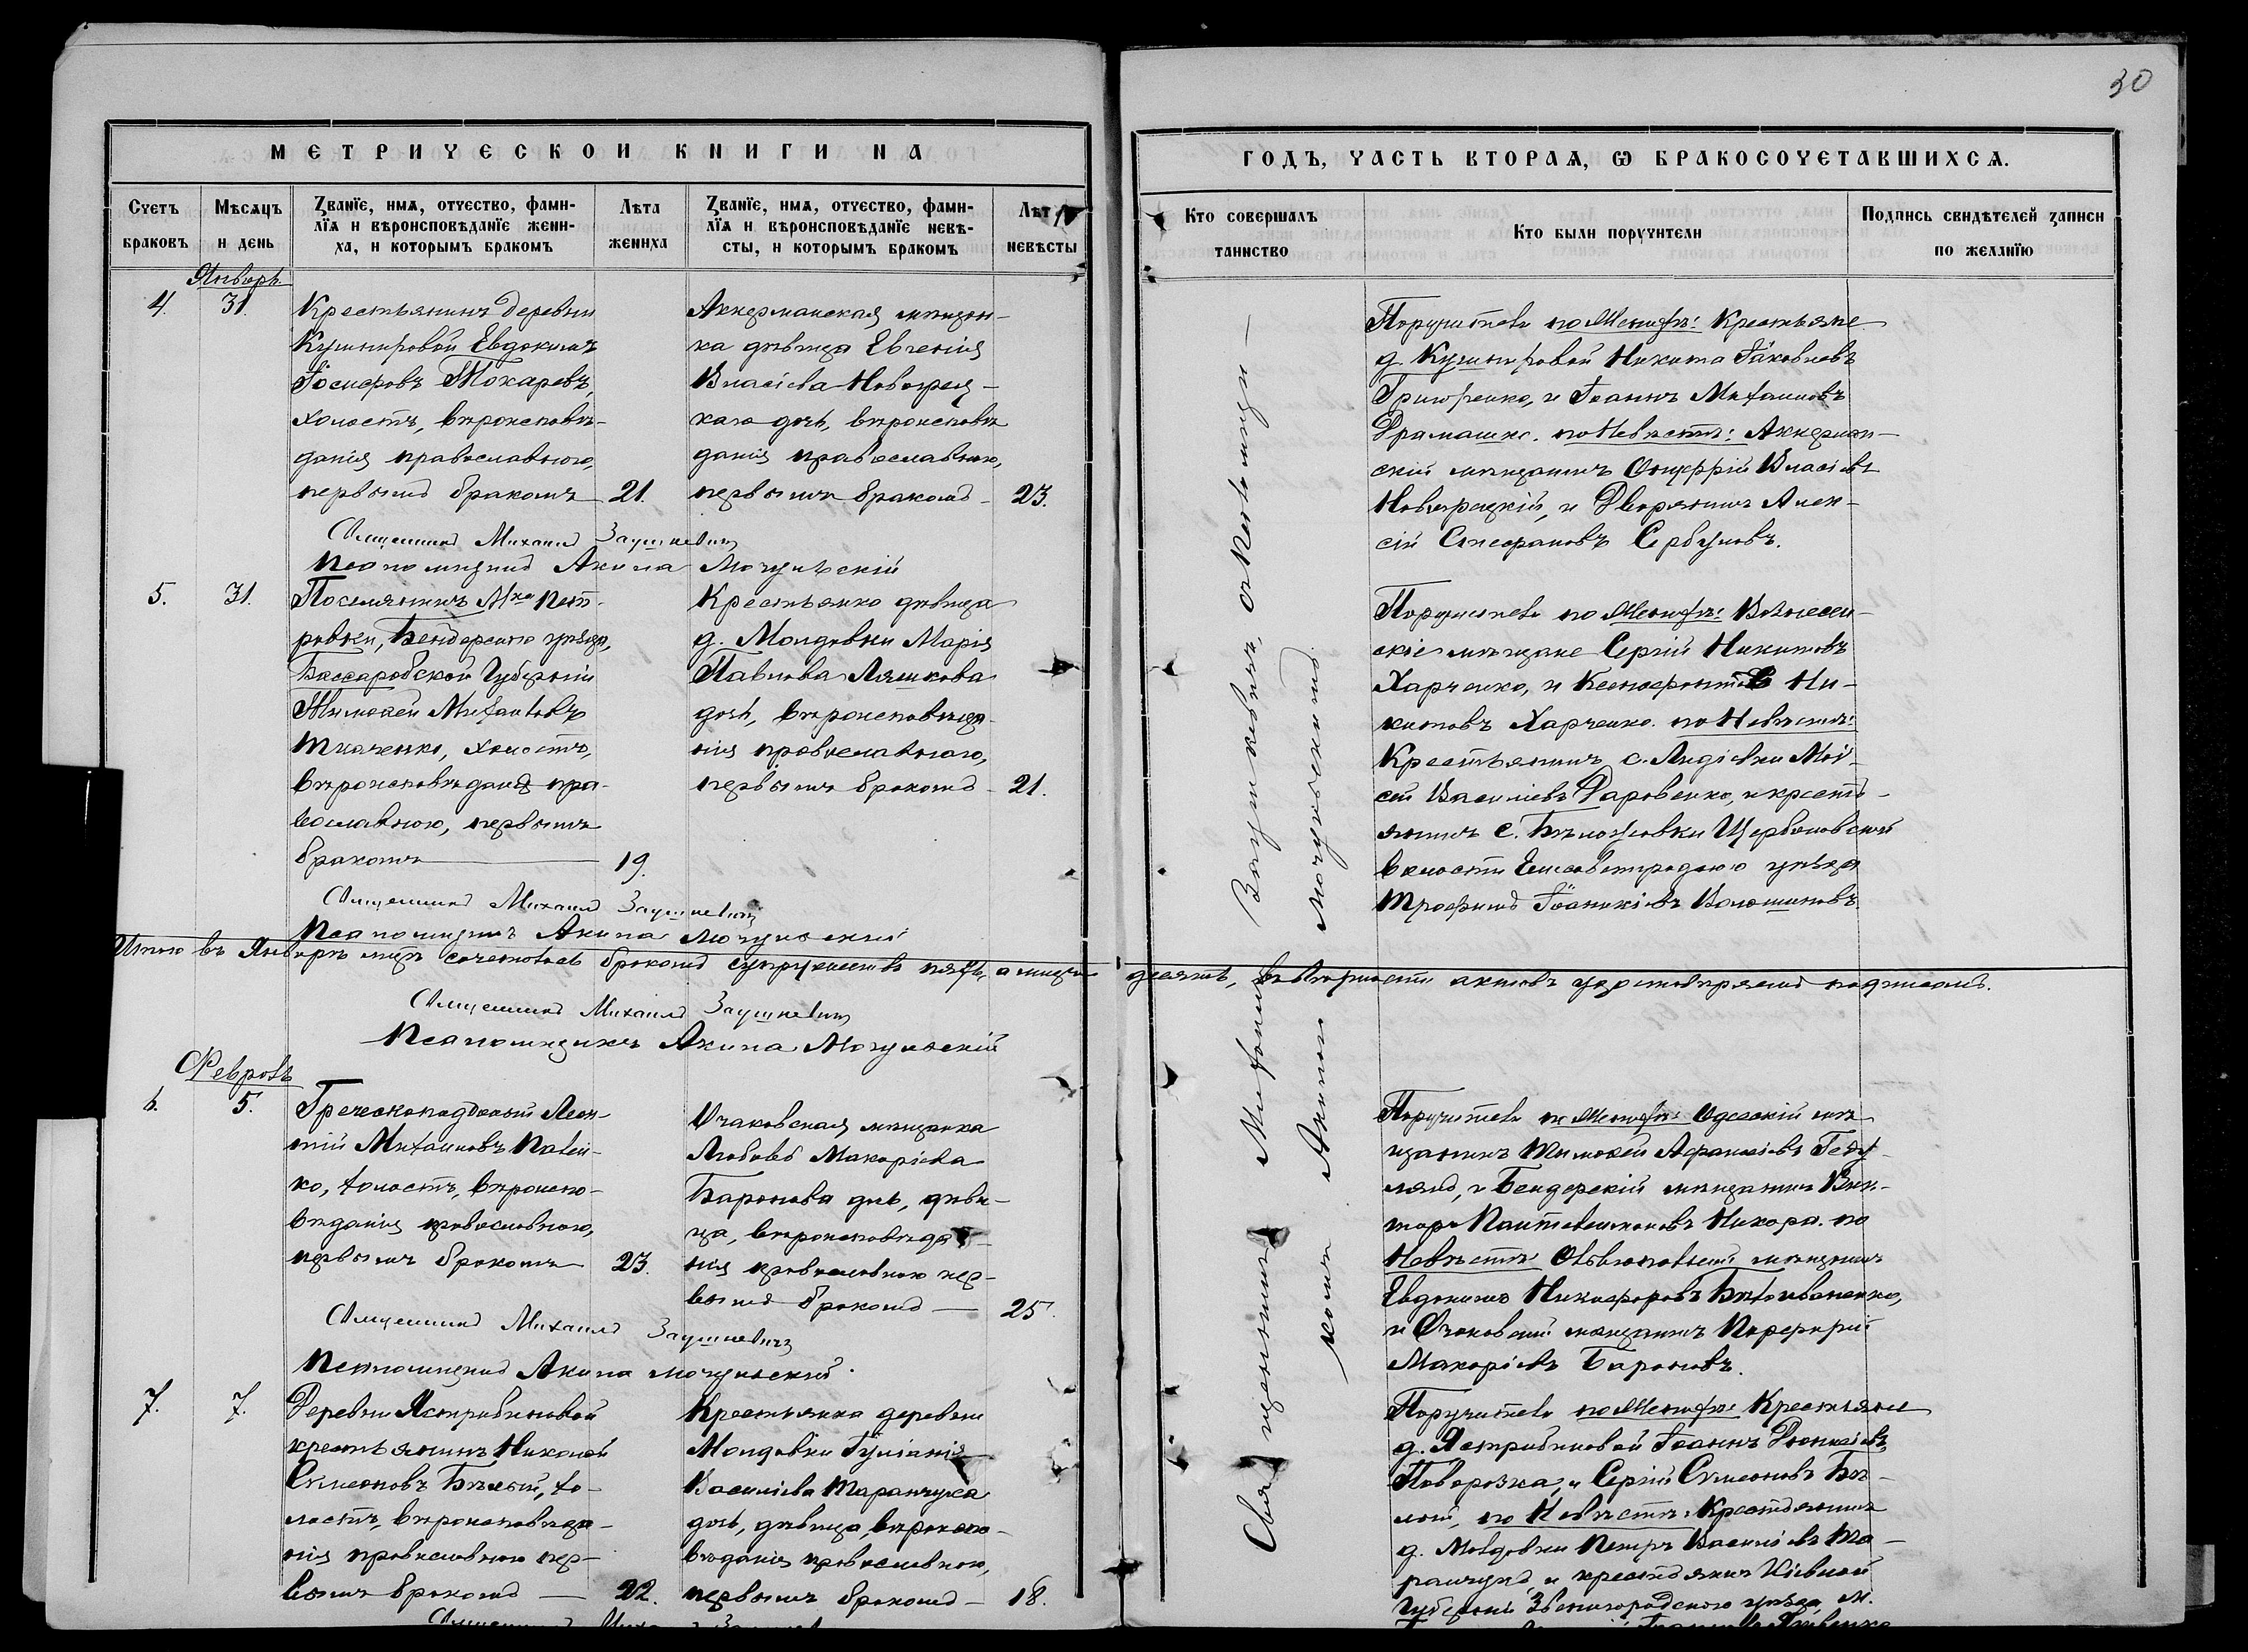 30
МЕТРИЧЕСКОИ КНИГИ НА
ГОДЪ, ЧАСТЬ ВТОРАѦ, Ѿ БРАКОСОЧЕТАВШИХСѦ.
Счетъ браковъ
Мѣсѧцъ и день
Званїе, имѧ, отчество, фами-
лїѧ и вѣроисповѣданїе жени-
ха, и которымъ бракомъ
Лѣта жениха
Званїе, имѧ, отчество, фами-
лїѧ и вѣроисповѣданїе невѣ-
сты, и которымъ бракомъ
Лѣт невѣсты
Кто совершалъ таинство
Кто были поручители
Подпись свидѣтелей записи по желанїю
Январь
4. 31.
Крестьянинъ деревни
Кушнировой Евдокимъ
Іосифовъ Токаревъ,
холостъ, вѣроисповѣ-
данія православнаго,
первымъ бракомъ 21.
Аккерманская мѣщан-
ка дѣвица Евгенія
Власіева
каго дочь, вѣроисповѣ
данія православнаго,
первымъ бракомъ - 23.
Поручители по Женихѣ: Крестьяне
д. Кушнировой Никита Іаковлевъ
Григоренко, и Іоаннъ Михаиловъ
по Невѣстѣ: Аккерман-
скій мѣщанинъ Онуфрій Власіевъ
и Дворянинъ Алек-
сій Стефановъ Сербуловъ.
Священникъ Михаилъ
Псаломщикъ Акила Могульскій
5. 31.
Поселянинъ Мка Пет-
ровки, Бендерскаго уѣзда,
Бассарабской Губерніи
Тимофей Михаиловъ
Ткаченко, холостъ,
вѣроисповѣданія пра-
вославнаго, первымъ
бракомъ 19.
Крестьянка дѣвица
д. Молдовки Марія
Павлова Ляшкова
дочь, вѣроисповѣда-
нія православнаго,
первымъ бракомъ - 21.
Поручители по Женихѣ: Вознесен-
скіе мѣщане Сергій Никитовъ
Харченко, и Ксенофонтъ Ни-
китовъ Харченко. по Невѣстѣ:
Крестьянинъ с. Лидіевки Мой-
сей Василіевъ Даровенко, и кресть-
янинъ с. Щербановской
волости Елисаветградскаго уѣзда
Трофимъ Іоанникіевъ Волошиновъ.
Священникъ Михаилъ
Псаломщикъ Акила Могульскій
Итого въ Январѣ мцѣ сочеталось бракомъ супружествъ пять, а лицъ десять, въ вѣрности актовъ удостовѣряемъ подписомъ.
Священникъ Михаилъ
Псаломщикъ Акила Могульскій
Февраль
6. 5.
Греческоподданый Леон-
тій Михаиловъ Палей-
ко, холостъ, вѣроиспо-
вѣданія православнаго,
первымъ бракомъ 23.
Очаковская мѣщанка
Любовь Макаріева
Баронова дочь, дѣви-
ца, вѣроисповѣда-
нія православнаго пер-
вымъ бракомъ — 25.
Поручители по Женихѣ: Одесскій мѣ-
щанинъ Тимофей Афанасіевъ
и Бендерскій мѣщанинъ Вик-
торъ Пантелеимоновъ Никора. по
Невѣстѣ: мѣщанинъ
Евдокимъ Никифоровъ
и Очаковскій мѣщанинъ Порфирій
Макаріевъ Бароновъ.
Священникъ Михаилъ
Псаломщикъ Акила Могульскій.
7. 7.
Деревни Ястрибиновой
крестьянинъ Николай
Симеоновъ Бѣлый, хо-
лостъ, вѣроисповѣда-
нія православнаго пер-
вымъ бракомъ — 22.
Крестьянка деревни
Молдовки Іуліанія
Василіева Таранчука
дочь, дѣвица, вѣроиспо-
вѣданія православнаго,
первымъ бракомъ - 18.
Поручители по Женихѣ: Крестьяне
д. Ястрибиновой Іоаннъ Діонисіевъ
Поворозка, и Сергій Симеоновъ Бѣ-
лый, по Невѣстѣ: Крестьянинъ
д. Молдовки Петръ Василіевъ Та-
ранчукъ, и крестьянинъ Кіевской
Губерніи Звенигородскаго уѣзда, М.
Священникъ
Священникъ съ Псаломщи-
комъ Акилою Могульскимъ